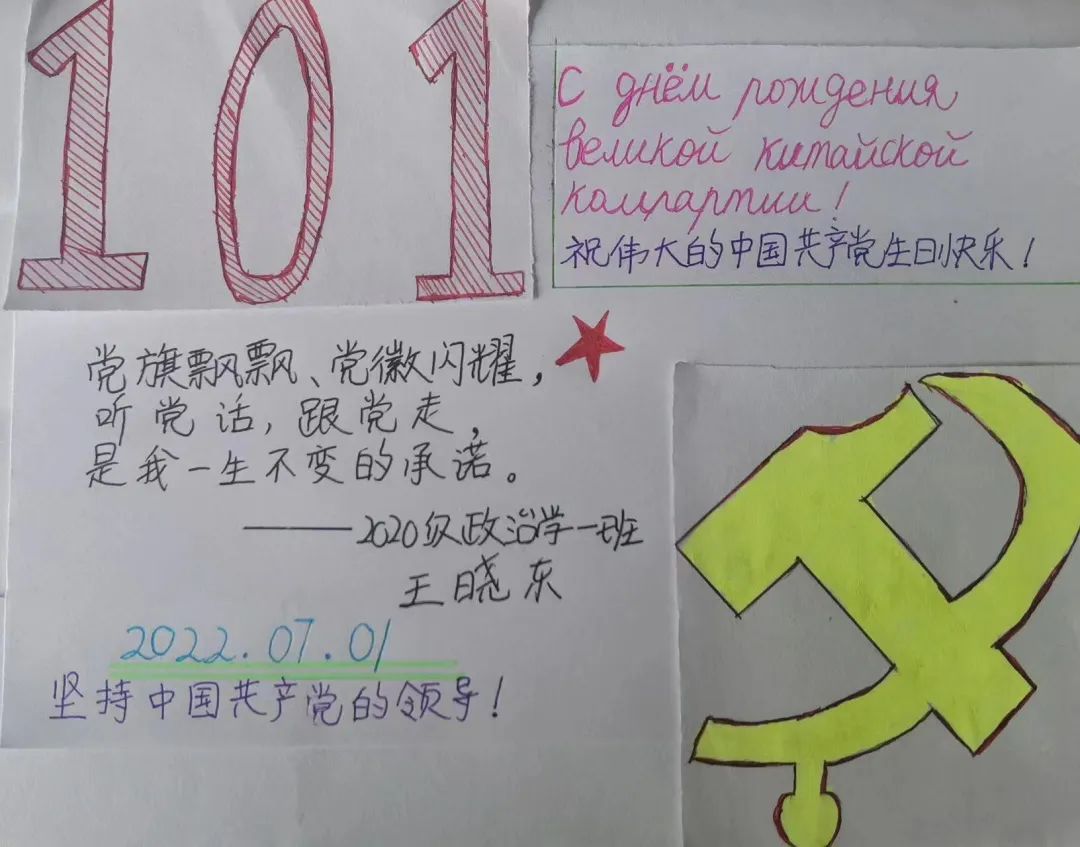 101
С днём рождения
великой китайской
компартии!
祝伟大的中国共产党生日快乐！
党旗飘飘、党徽闪耀，
听党话，跟党走，
是我一生不变的承诺。
——2020级政治学一班
王晓东
2022.07.01
坚持中国共产党的领导！